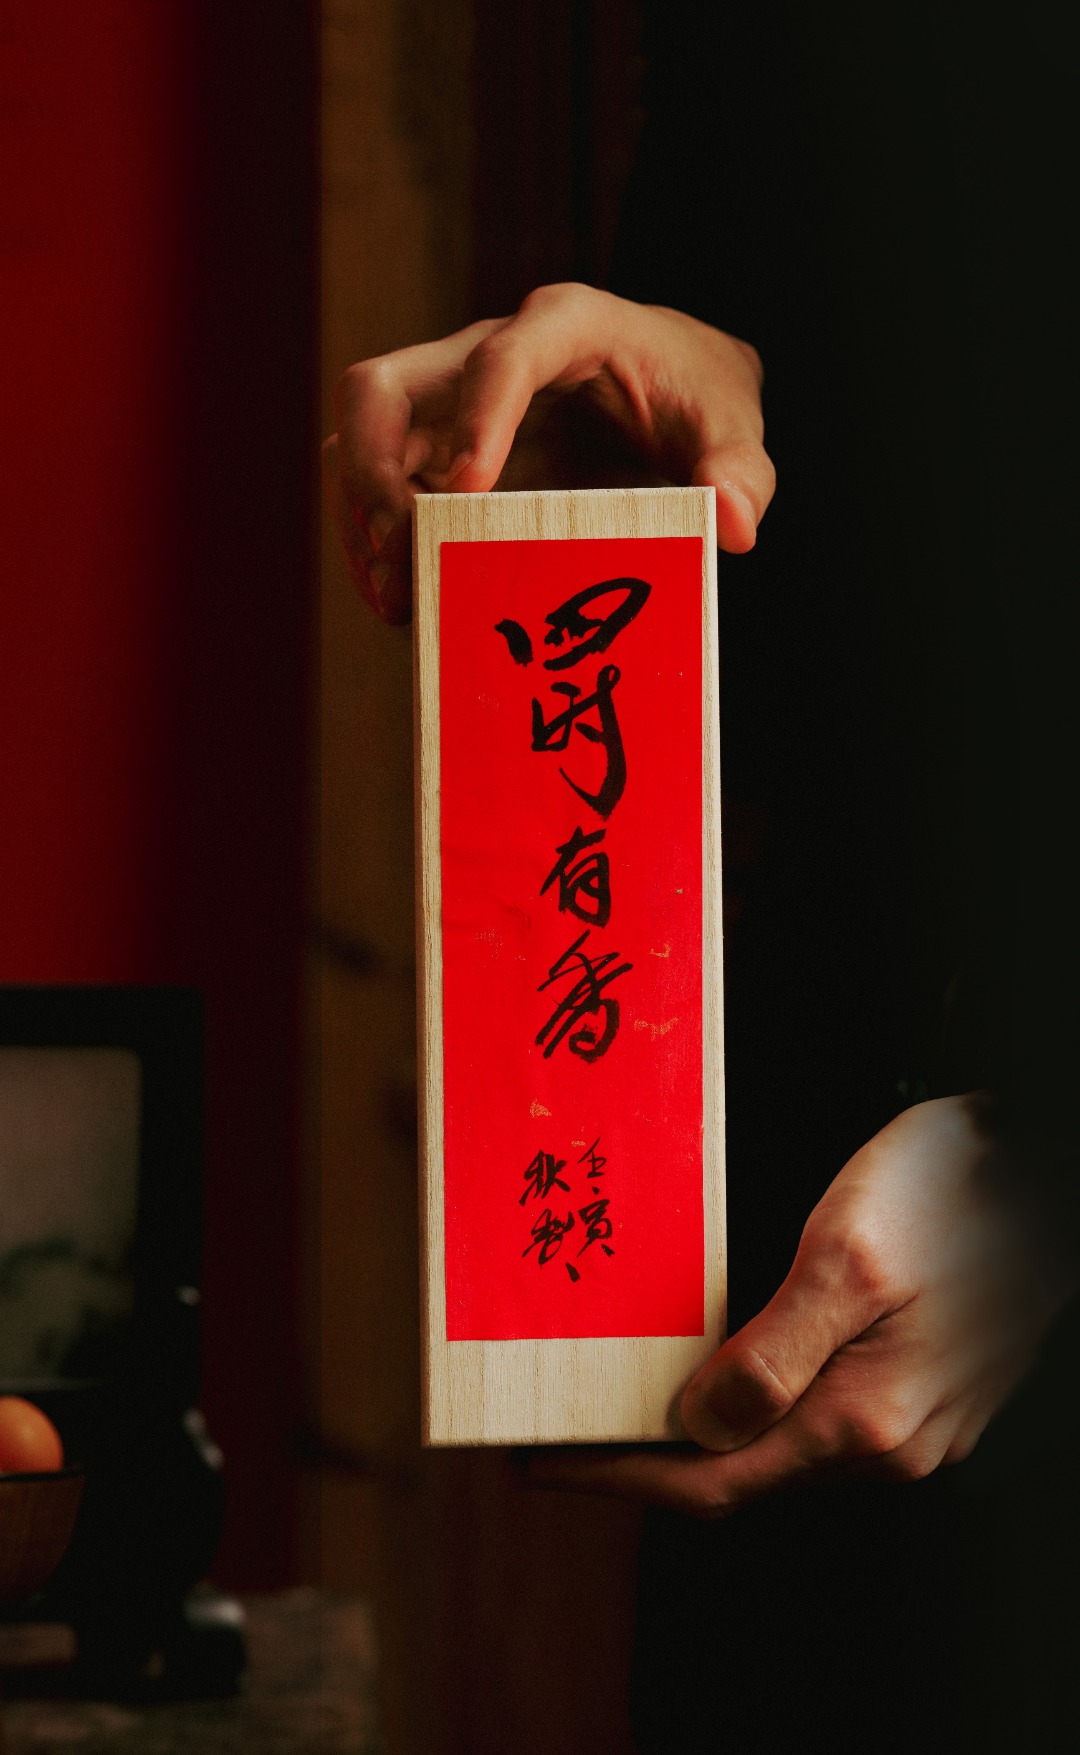 四时有香
壬寅
秋